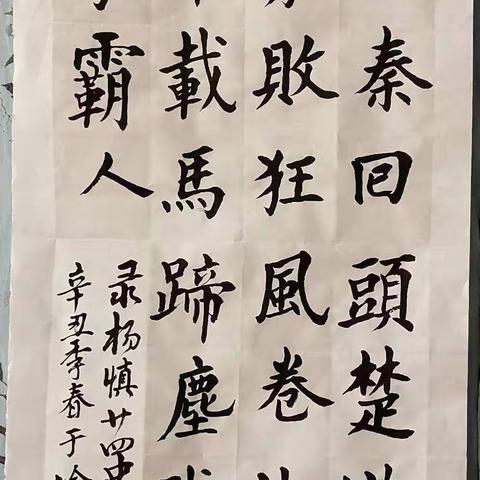 秦回頭楚
敗狂風卷
載馬蹄塵
霸人
录杨慎廿四史
辛丑季春于